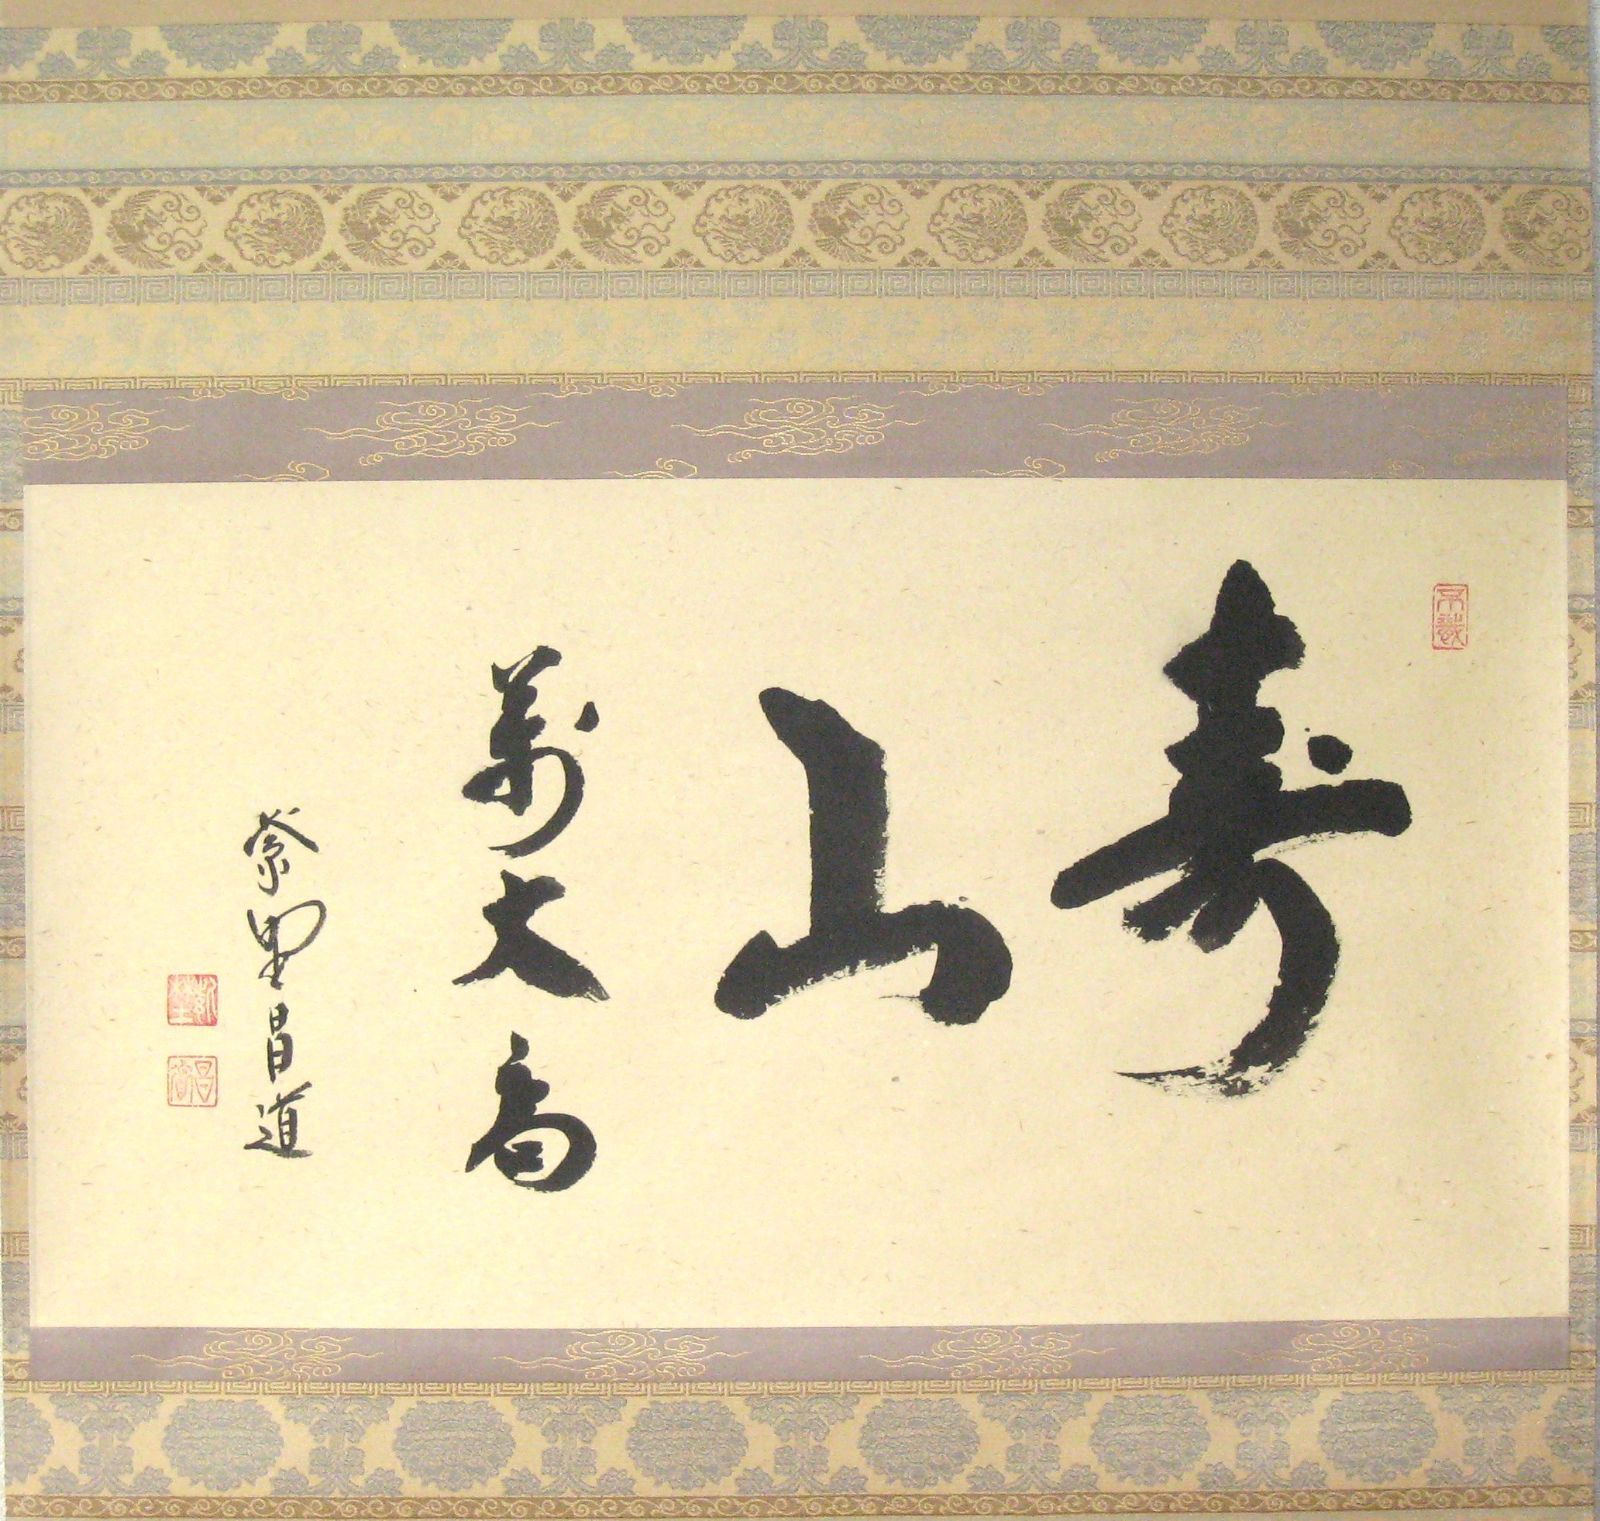 寿山
萬丈高
紫野昌道